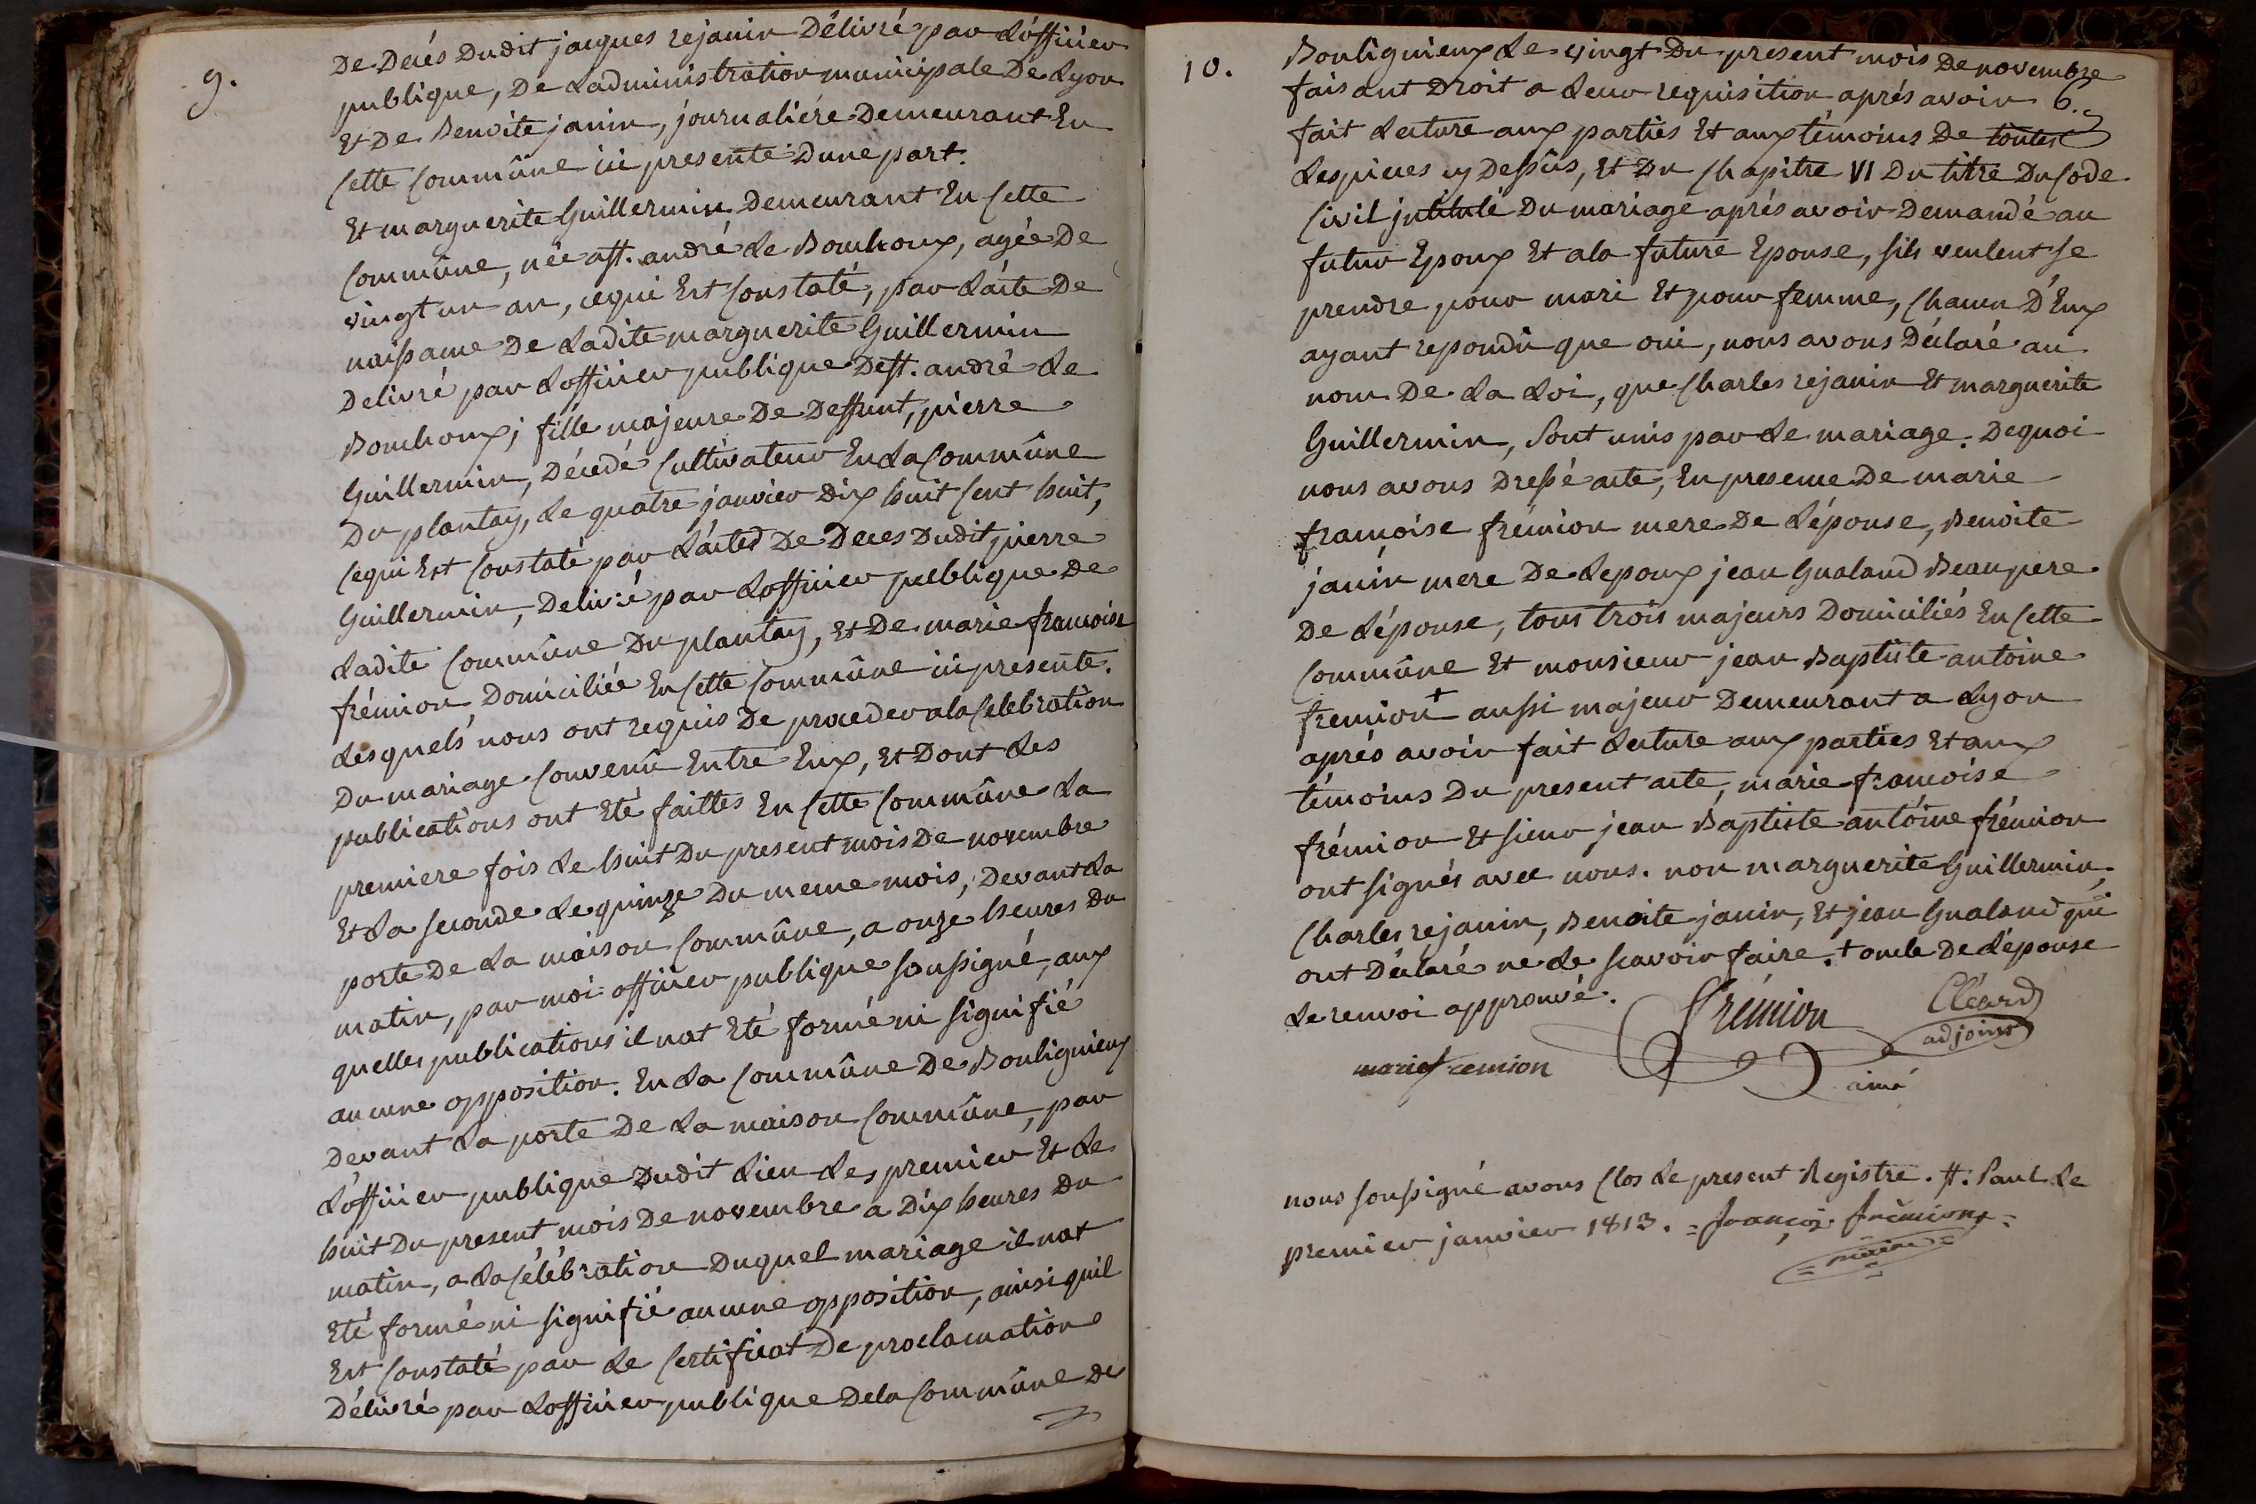 9.
De Decés Dudit jacques rejanin Délivré par L'officier
publique, De Ladministration municipale De Lyon
Et De Benoite janin, journaliére Demeurant En
Cette Commûne ici presente D'une part.
Et marguerite Guillermin Demeurant En Cette
Commûne, née a St. andré Le Bouchoux, agée De
vingt un an, cequi Est Constaté, par L'acte De
naissance De Ladite marguerite Guillermin
Delivré par Lofficier publique De St. andré Le
Bouchoux; fille majeure De Deffunt, pierre
Guillermin, Décedé Cultivateur En La Commûne
Du plantay, Le quatre janvier dix huit Cent huit,
Cequi Est Constaté par L'acte De Deces Dudit pierre
Guillermin, Delivré par Lofficier publique De
Ladite Commûne Du plantay, Et De marie francoise
frémion, Domiciliée En Cette Commûne ici presente.
Lesquels nous ont requis De proceder a la Celebration
Du mariage Convenû Entre Eux, Et Dont Les
publications ont Eté faittes En Cette Commûne La
premiere fois Le huit Du present mois De novembre
Et La seconde Le quinze Du meme mois, Devant La
porte De La maison Commûne, a onze heures Du
matin, par moi officier publique soussigné, aux
quelles publications il nat Eté formé ni signifié
aucune opposition. En La Commûne De Bouligneux
Devant La porte De La maison Commûne, par
L'officier publique Dudit Lieu Les premier Et Le
huit Du present mois De novembre a Dix heures Du
matin, a La Célébration Duquel mariage il nat
Eté formé ni signifié aucune opposition, ainsi quil
Est Constaté par Le Certificat De proclamation
Délivré par Lofficier publique Dela Commûne De
10.
Bouligneux Le vingt Du present mois De novembre
faisant Droit a Leur requisition aprés avoir 6.
fait Lecture aux parties Et aux témoins De toutes
Les pieces cy Dessûs, Et Du Chapitre VI Du titre Du Code
Civil jntitulé Du mariage aprés avoir Demandé au
futur Epoux Et a la future Epouse, sils veulent se
prendre pour mari Et pour femme, Chacun D'Eux
ayant repondû que oui, nous avons Déclaré au
nom De La Loi, que Charles rejanin Et marguerite
Guillermin, Sont unis par Le mariage. Dequoi
nous avons Dressé acte, En presence De marie
francoise frémion mere De L'épouse, Benoite
janin mere De Lepoux jean Gualand Beaupere
De L'épouse, tous trois majeurs Domiciliés En Cette
Commûne Et monsieur jean Baptiste antoine
fremion + aussi majeur Demeurant a Lyon
aprés avoir fait Lecture aux parties Et aux
témoins Du present acte, marie francoise
frémion Et sieur jean Baptiste antoine frémion
ont signés avec nous. non marguerite Guillermin,
Charles rejanin, Benoite janin, Et jean Gualand qui
ont Déclaré ne Le scavoir faire. + oncle De L'épouse
Le renvoi approuvé.
Frémion
Cléard
adjoint
marie fremion
ainé
nous soussigné avons Clos Le present Registre. St. Paul Le
premier janvier 1813. = françois frémion =